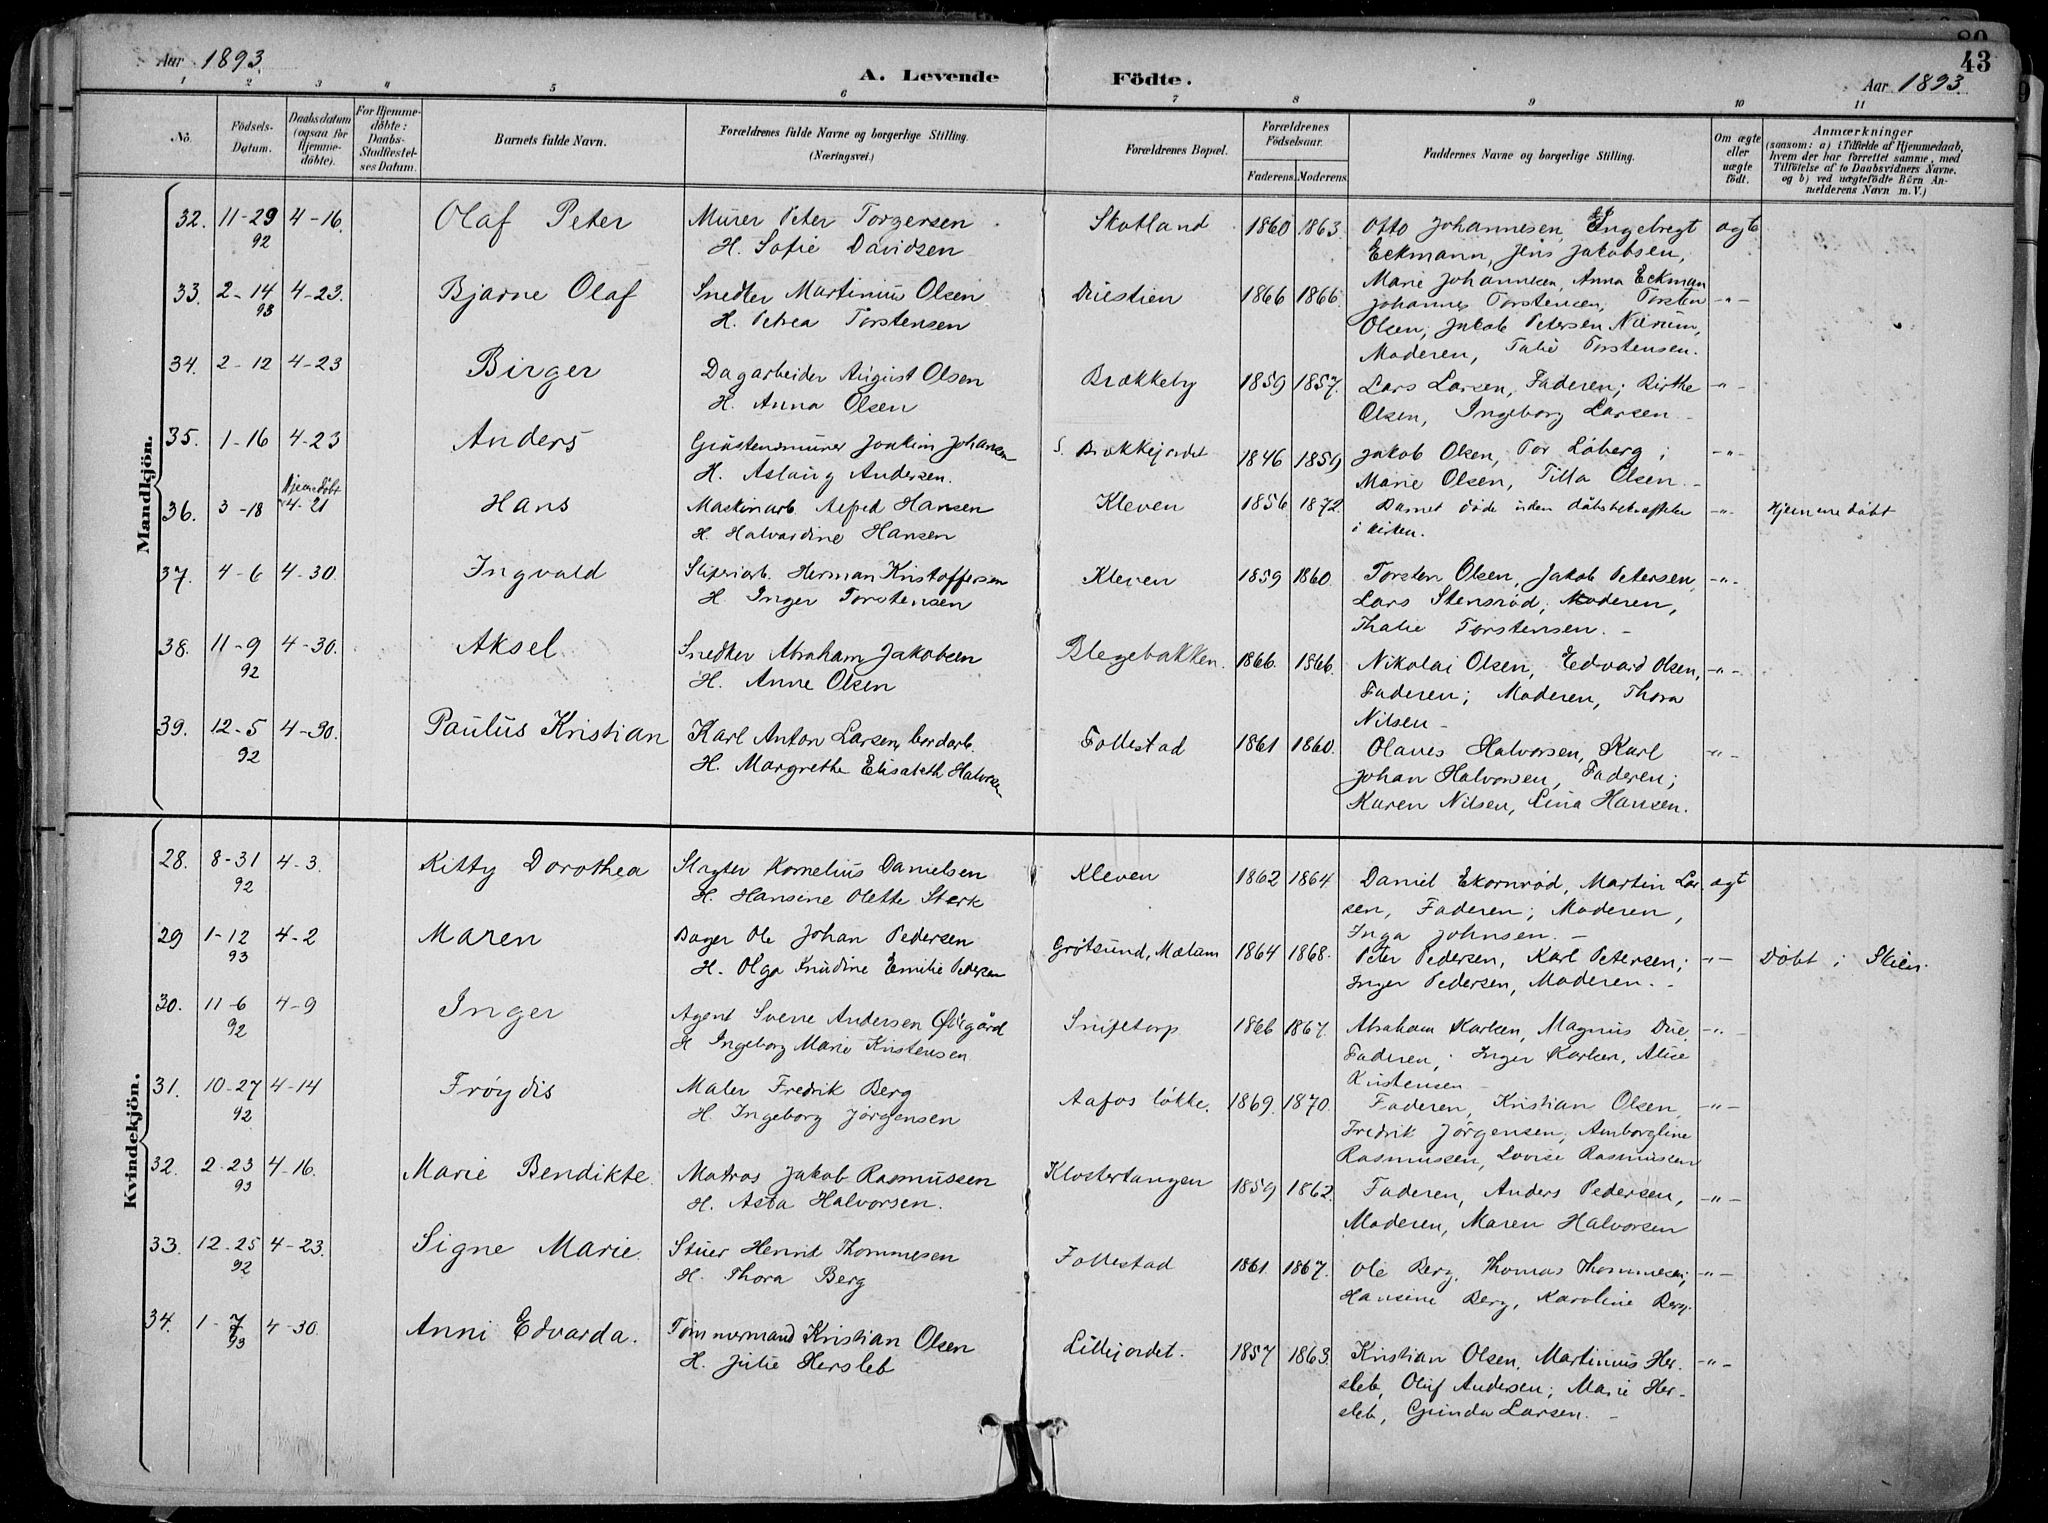 80
43
Aar 1893.
A. Levende Födte.
Aar 1893.
1 2 3 4 5 6 7 8 9 10 11
No.
Födsels-Datum.
Daabsdatum (ogsaa for Hjemmedöbte).
For Hjemmedöbte: Daabs-Stadfæstelses Datum.
Barnets fulde Navn.
Forældrenes fulde Navne og borgerlige Stilling.
(Næringsvei.)
Forældrenes Bopæl.
Forældrenes Födselsaar.
Faderens. Moderens.
Faddernes Navne og borgerlige Stilling.
Om ægte eller uægte födt.
Anmærkninger
(saasom: a) i Tilfælde af Hjemmedaab, hvem der har forrettet samme, med Tilföielse af to Daabsvidners Navne, og b) ved uægtefödte Börn Anmelderens Navn m. V.)
Mandkjön.
32. 11-29 92 4-16. Olaf Peter Murer Peter Torgersen Skotland 1860 1863. Otto Johannesen, Ingebregt ægte
H. Sofie Davidsen Eckmann, Jens Jakobsen,
Marie Johannesen, Anna Eckman
33. 2-14 93 4-23. Bjarne Olaf Snedker Martinius Olsen Duestien 1866 1866. Johannes Torstensen, Torsten -"-
H. Petrea Torstensen Olsen, Jakob Petersen Narum,
Moderen, Talie Torstensen.
34. 2-12 4-23 Birger Dagarbeider August Olsen Brækkeby 1859 1857. Lars Larsen, Faderen; Birthe -"-
H. Anna Olsen Olsen, Ingeborg Larsen.
35. 1-16 4-23 Anders Joakim Johansen S. Brækkejordet 1846 1859 Jakob Olsen, Tor Løberg; -"-
H. Aslaug Andersen. Marie Olsen, Tilla Olsen.
36. 3-18 Hjemmedöbt 4-21 Hans Maskinarb. Alfred Hansen Kleven 1856 1872. Barnet døde uden dåbsbekræftelse -"- Hjemmedøbt
H. Halvardine Hansen i kirken.
37. 4-6 4-30. Ingvald Sliperiarb. Herman Kristoffersen Kleven 1859 1860. Torsten Olsen, Jakob Petersen, -"-
H. Inger Torstensen Lars Stensrød; Moderen,
Thalie Torstensen.
38. 11-9 92 4-30. Aksel Snedker Abraham Jakobsen Blegebakken. 1866. 1866. Nikolai Olsen, Edvard Olsen, -"-
H. Anne Olsen Faderen; Moderen, Thora
Nilsen
39. 12-5 92 4-30. Paulus Kristian Karl Anton Larsen, bordarb. Follestad 1861 1860. Olaves Halvorsen, Karl -"-
H. Margrethe Elisabeth Halvorsen Johan Halvorsen, Faderen;
Karen Nilsen, Lina Hansen.
Kvindekjön.
28. 8-31 92 4-3. Kitty Dorothea Slagter Kornelius Danielsen Kleven 1862 1864 Daniel Ekornrød, Martin Lar- ægt
H. Hansine Olette Sterk sen, Faderen; Moderen,
Inga Johnsen.
29 1-12 93 4-2 Maren Bager Ole Johan Pedersen Grøtsund, Mælum 1864 1868. Peter Pedersen, Karl Petersen; -"- Døbt i Skien.
H. Olga Knudine Emilie Pedersen Inger Pedersen, Moderen.
30. 11-6 92 4-9 Inger Agent Svenn Andersen Øigård Sniptorp 1866 1867. Abraham Karlsen, Magnus Due, -"-
H Ingeborg Marie Kristensen Faderen; Inger Karlsen, Alice
Kristensen
31. 10-27 92 4-14 Frøydis Maler Fredrik Berg Aafos løkke. 1869. 1870. Faderen, Kristian Olsen, -"-
H. Ingeborg Jørgensen Fredrik Jørgensen; Amborgline
Rasmussen, Lovise Rasmussen
32. 2-23 93 4-16. Marie Bendikte Matros Jakob Rasmussen Klostertangen 1859 1862. Faderen, Anders Pedersen, -"-
H. Asta Halvorsen. Moderen, Maren Halvorsen
33. 12-25 92 4-23. Signe Marie. Stuer Henrik Thommesen Follestad 1861. 1867. Ole Berg. Thomas Thommesen; -"-
H. Thora Berg Hansine Berg, Karoline Berg.
34. 1-7 93 4-30. Anni Edvarda. Tømmermand Kristian Olsen Lillejordet. 1857 1863. Kristian Olsen, Martinius Her- -"-
H. Julie Hersleb sleb, Oluf Andersen; Marie Her-
sleb, Gunda Larsen.